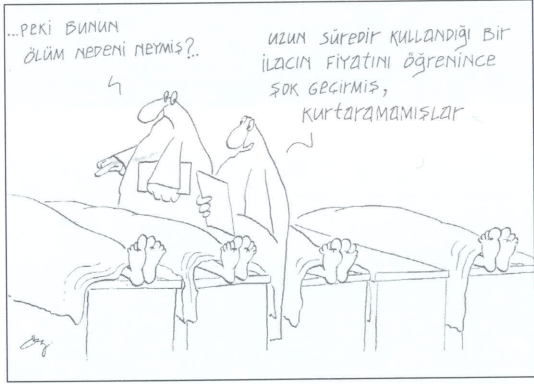 ...PEKİ BUNUN
ÖLÜM NEDENİ NEYMİŞ?..
UZUN SÜREDİR KULLANDIĞI BİR
İLACIN FİYATINI ÖĞRENİNCE
ŞOK GEÇİRMİŞ,
KURTARAMAMIŞLAR